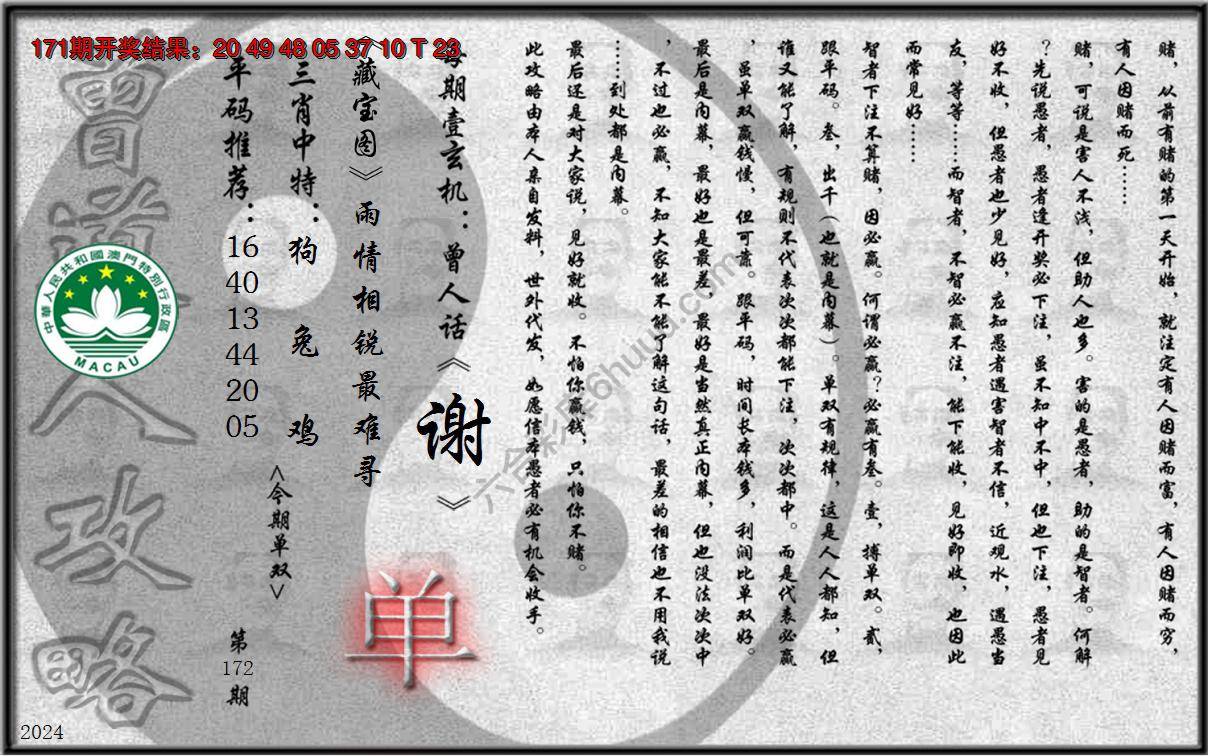 171期开奖结果：20 49 48 05 37 10 T 23
赌，从前有赌的第一天开始，就注定有人因赌而富，有人因赌而穷，
有人因赌而死……
赌，可说是害人不浅，但助人也多。害的是愚者，助的是智者。何解
？先说愚者，愚者逢开奖必下注，虽不知中不中，但也下注，愚者见
好不收，但愚者也少见好，应知愚者遇害智者不信，近观水，遇愚当
友，等等……而智者，不智必赢不注，能下能收，见好即收，也因此
而常见好……
智者下注不算赌，因必赢。何谓必赢？必赢有叁。壹，搏单双。贰，
跟平码。叁，出千（也就是内幕）。单双有规律，这是人人都知，但
谁又能了解，有规则不代表次次都能下注，次次都中。而是代表必赢
，虽单双赢钱慢，但可靠。跟平码，时间长本钱多，利润比单双好。
最后是内幕，最好也是最差，最好是当然真正内幕，但也没法次次中
，不过也必赢，不知大家能不能了解这句话，最差的相信也不用我说
……到处都是内幕。
最后还是对大家说，见好就收。不怕你赢钱，只怕你不赌。
此攻略由本人亲自发料，世外代发，如愿信本愚者必有机会收手。
每期壹玄机：曾人话《谢》
《藏宝图》雨情相锐最难寻
三肖中特：狗 兔 鸡
<今期单双>
单
平码推荐：16 40 13 44 20 05
第172期
曾道人攻略
中華人民共和國澳門特別行政區
MACAU
2024